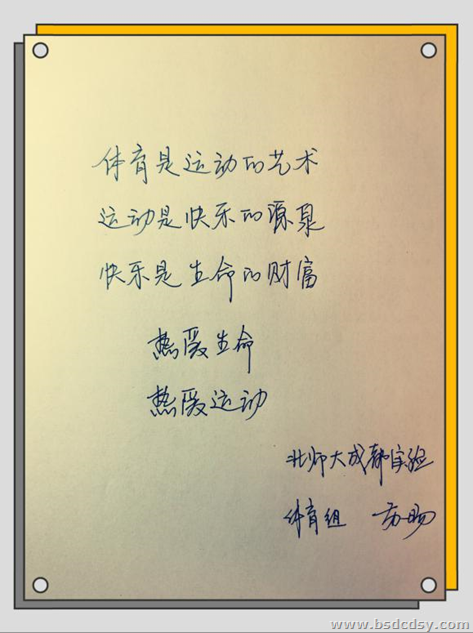 体育是运动的艺术
运动是快乐的源泉
快乐是生命的财富
热爱生命
热爱运动
北师大成都实验
体育组
www.bsdcdsy.com